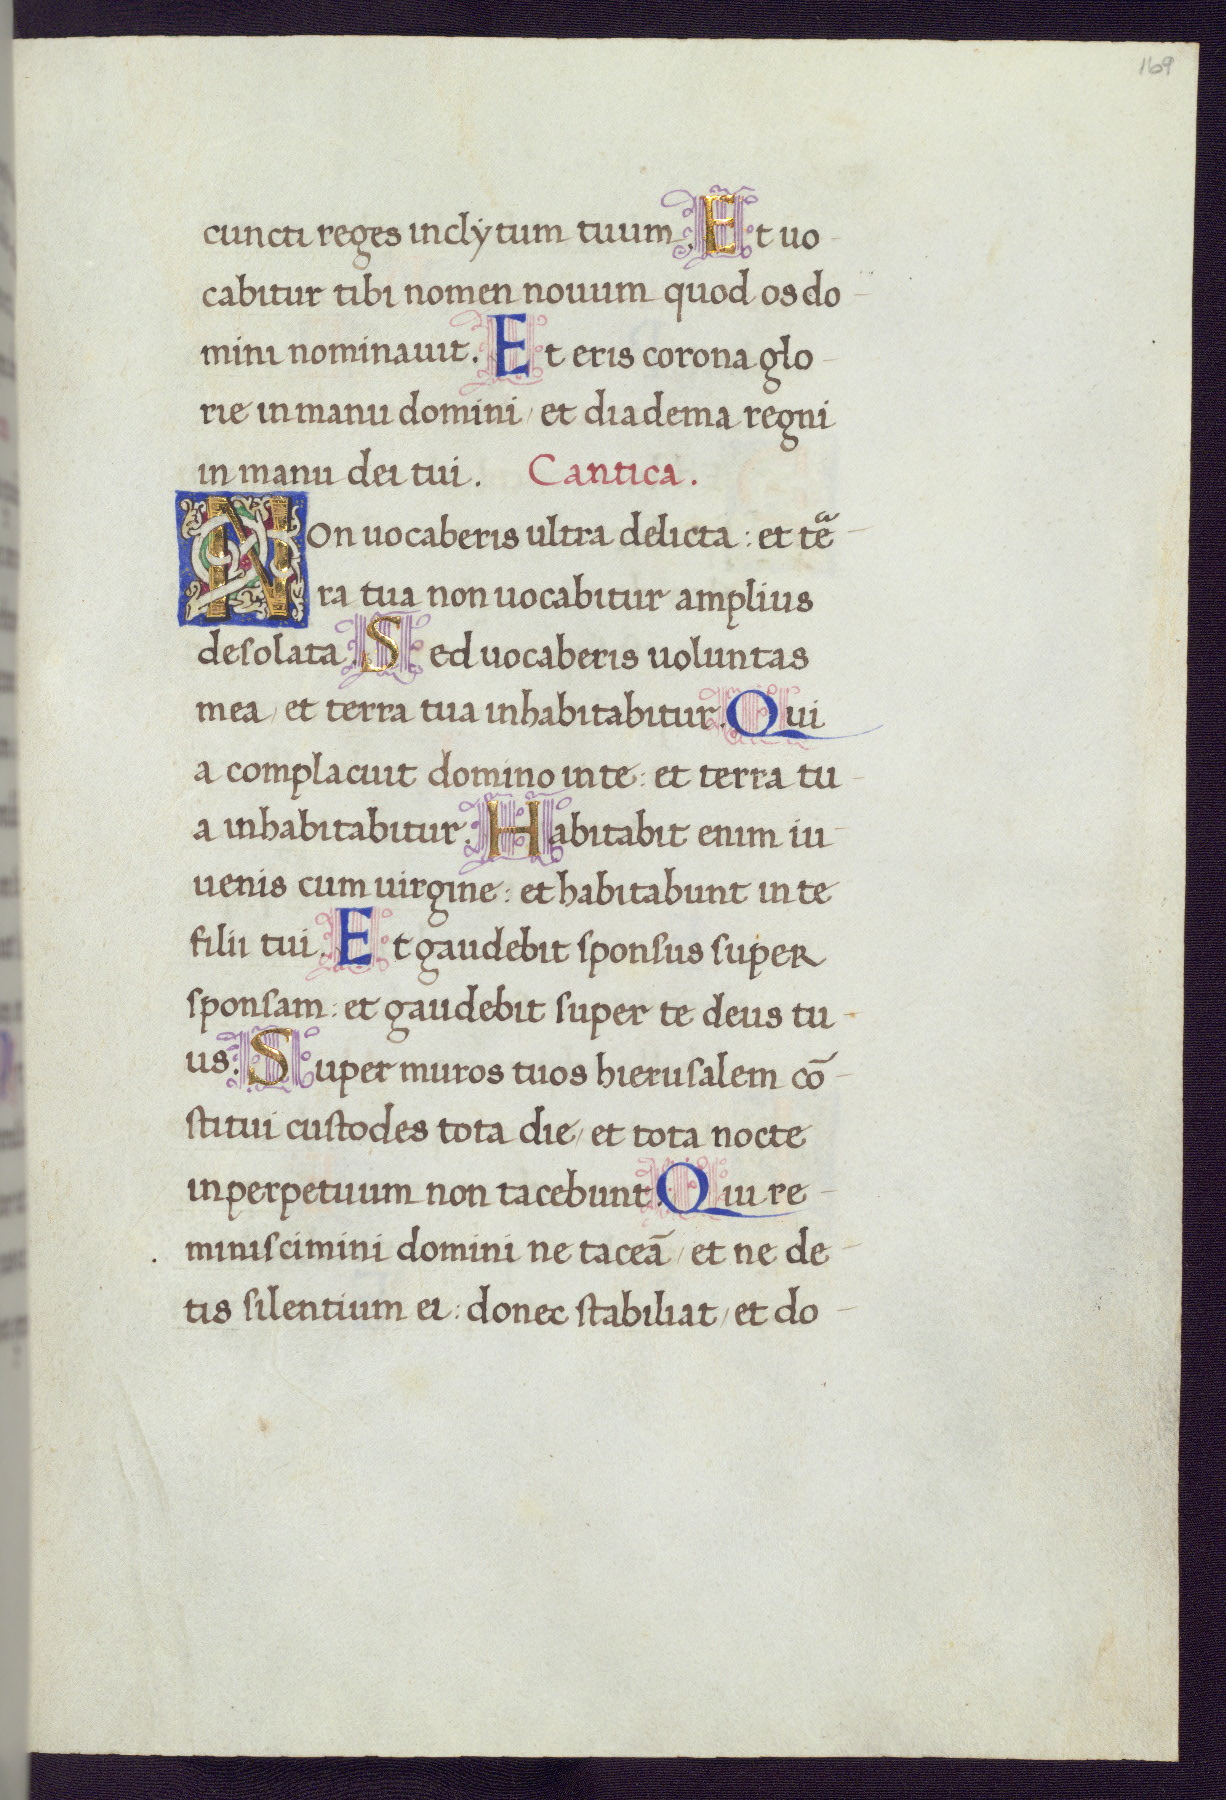 169
cuncti reges inclýtum tuum. Et uo-
cabitur tibi nomen nouum quod os do-
mini nominauit. Et eris corona glo-
rie in manu domini / et diadema regni
in manu dei tui. Cantica.
Non uocaberis ultra delicta: et teͣ-
ra tua non uocabitur amplius
desolata. Sed uocaberis uoluntas
mea / et terra tua inhabitabitur. Qui
a complacuit domino in te: et terra tu-
a inhabitabitur. Habitabit enim iu-
uenis cum uirgine: et habitabunt in te
filii tui. Et gaudebit sponsus super
sponsam: et gaudebit super te deus tu-
us. Super muros tuos hierusalem cō-
stitui custodes tota die / et tota nocte
inperpetuum non tacebunt. Qui re-
miniscimini domini ne taceā / et ne de-
tis silentium ei: donec stabiliat / et do-